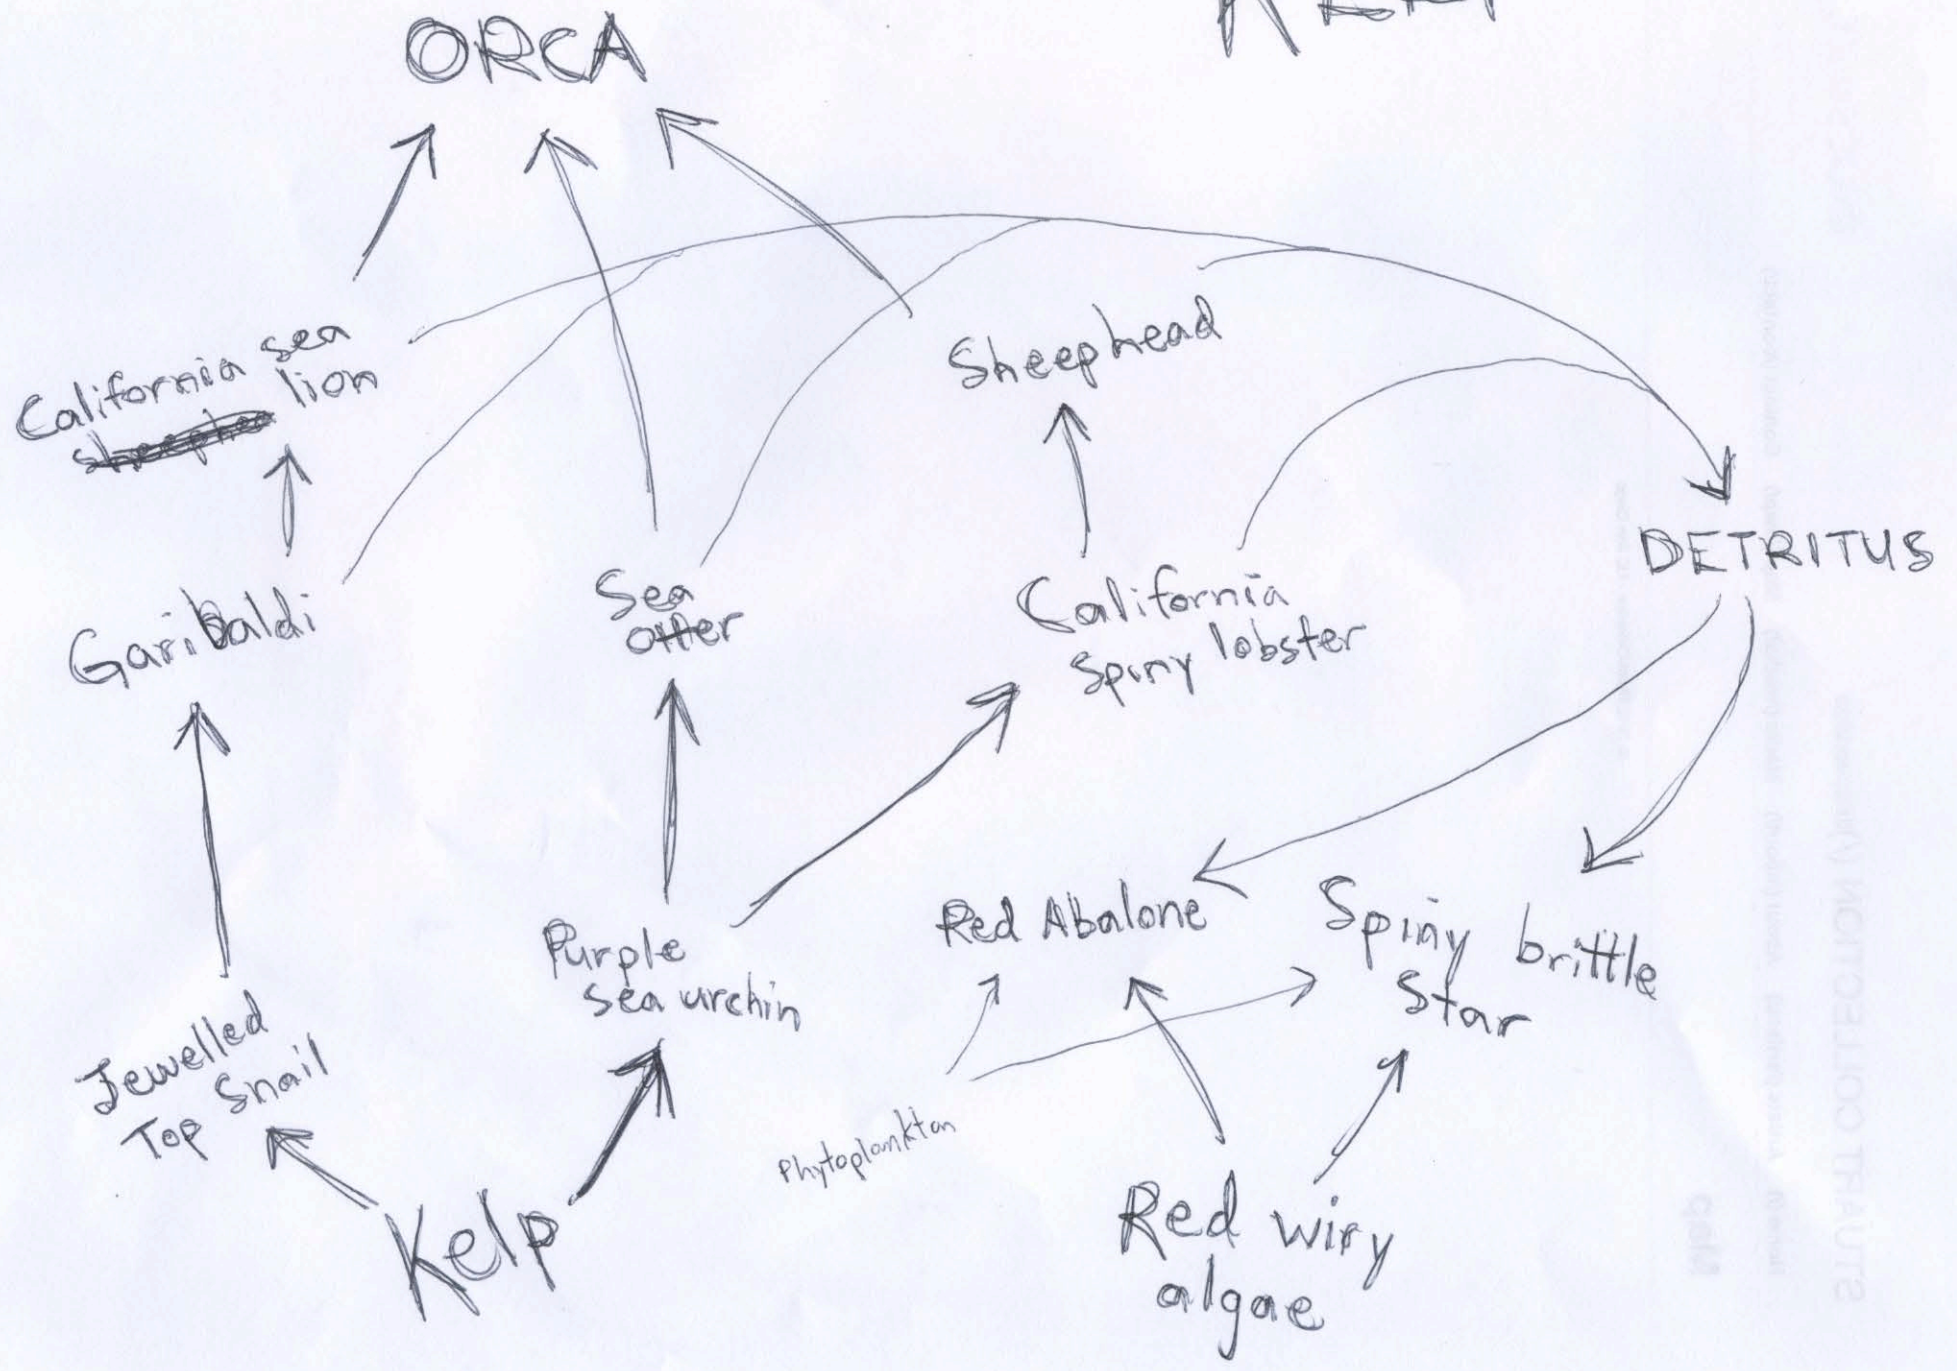 ORCA
California sea
lion
Sheephead
Garibaldi
Sea
otter
California
Spiny lobster
DETRITUS
Purple
sea urchin
Red Abalone
Spiny brittle
Star
Jewelled
Top Snail
Phytoplankton
Kelp
Red wiry
algae
STUART COLLECTION
Map